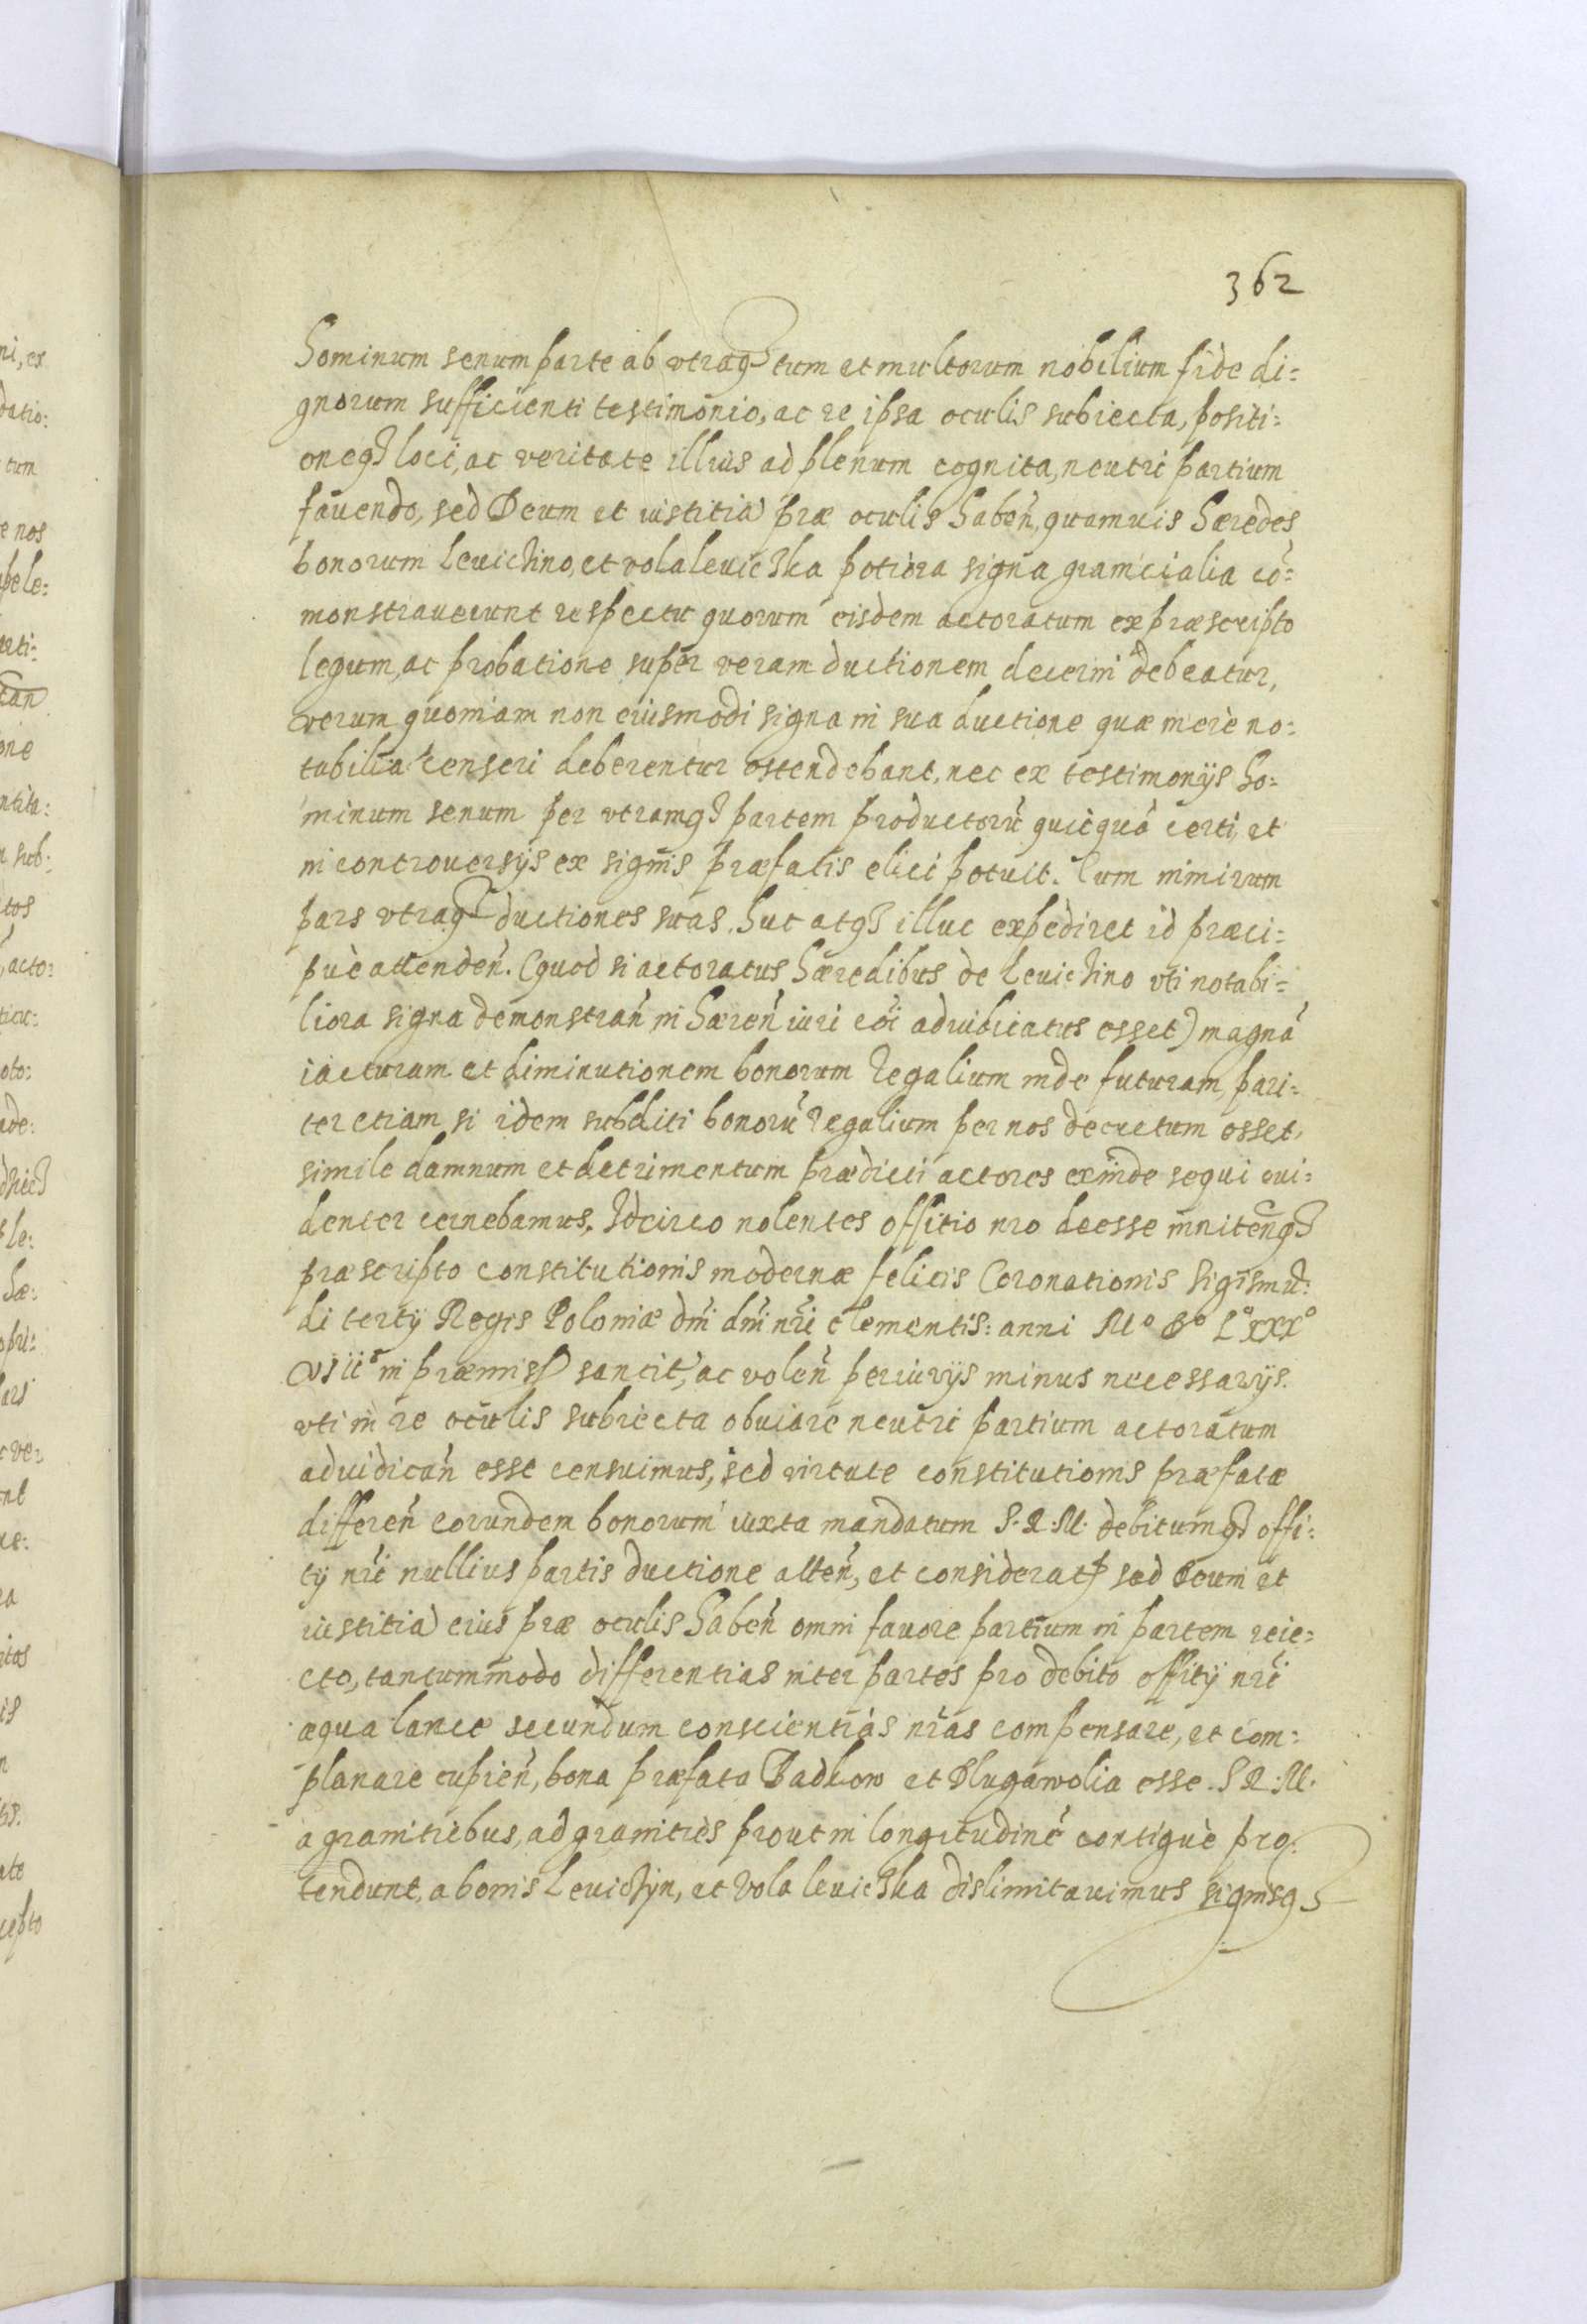 362
hominum senum parte ab vtraq3 tum et multorum nobilium fide di=
gnorum sufficienti testimonio, ac re ipsa oculis subiecta, positi=
oneq3 loci, ac veritate illius ad plenum cognita, neutri partium
fauendo, sed Deum et iustitiā præ oculis haben̄, quamuis hæredes
bonorum Leuichino, et volaleuicska potiora signa granicialia cō=
monstrauerunt respectu quorum eisdem actoratum ex præscripto
legum, ac probatione super veram ductionem decerni debeatur,
verum quoniam non eiusmodi signa in sua ductione quæ mere no=
tabilia censeri deberentur ostendebant, nec ex testimonijs ho=
minum senum per vtramq3 partem productorū quicquā certi, et
in controuersijs ex signis præfatis elici potuit. Cum nimirum
pars vtraq3 ductiones suas huc atq3 illuc expediret id præci=
puè attenden̄. (quod si actoratus hæredibus de Leuichino vti notabi=
liora signa demonstran̄ in hæren̄ iuri cōi adiudicatus esset) magnā
iacturam et diminutionem bonorum Regalium inde futuram, pari=
ter etiam si idem subditi bonorū Regalium per nos decretum esset,
simile damnum et detrimentum prædicti actores exinde sequi eui=
denter cernebamus, Idcirco nolentes offitio nr̄o deesse innitenq3
præscripto constitutionis modernæ felicis Coronationis Sigismū=
di tertij Regis Poloniæ dn̄i dn̄i nr̄i clementis: anni Mº Dº Lºxxxº
viiiº in præmiss sancit, ac volen̄ periurijs minus necessarijs.
vti in re oculis subiecta obuiare neutri partium actoratum
adiudican̄ esse censuimus, sed virtute constitutionis præfatæ
differen̄ eorundem bonorum iuxta mandatum S. R. M. debitumq3 offi=
tij nr̄i nullius partis ductione atten̄, et considerat sed Deum et
iustitiā eius præ oculis haben̄ omni fauore partium in partem reie=
cto, tantummodo differentias inter partes pro debito offitij nr̄i
æqua lance secundum conscientias nr̄as compensare, et com=
planare cupien̄, bona præfata Badkow et Dlugawolia esse S. R. M.
a granitiebus, ad granities prout in longitudinē contiguè pro=
tendunt, a bonis Leuichyn, et vola leuicska dislimitauimus signisq3